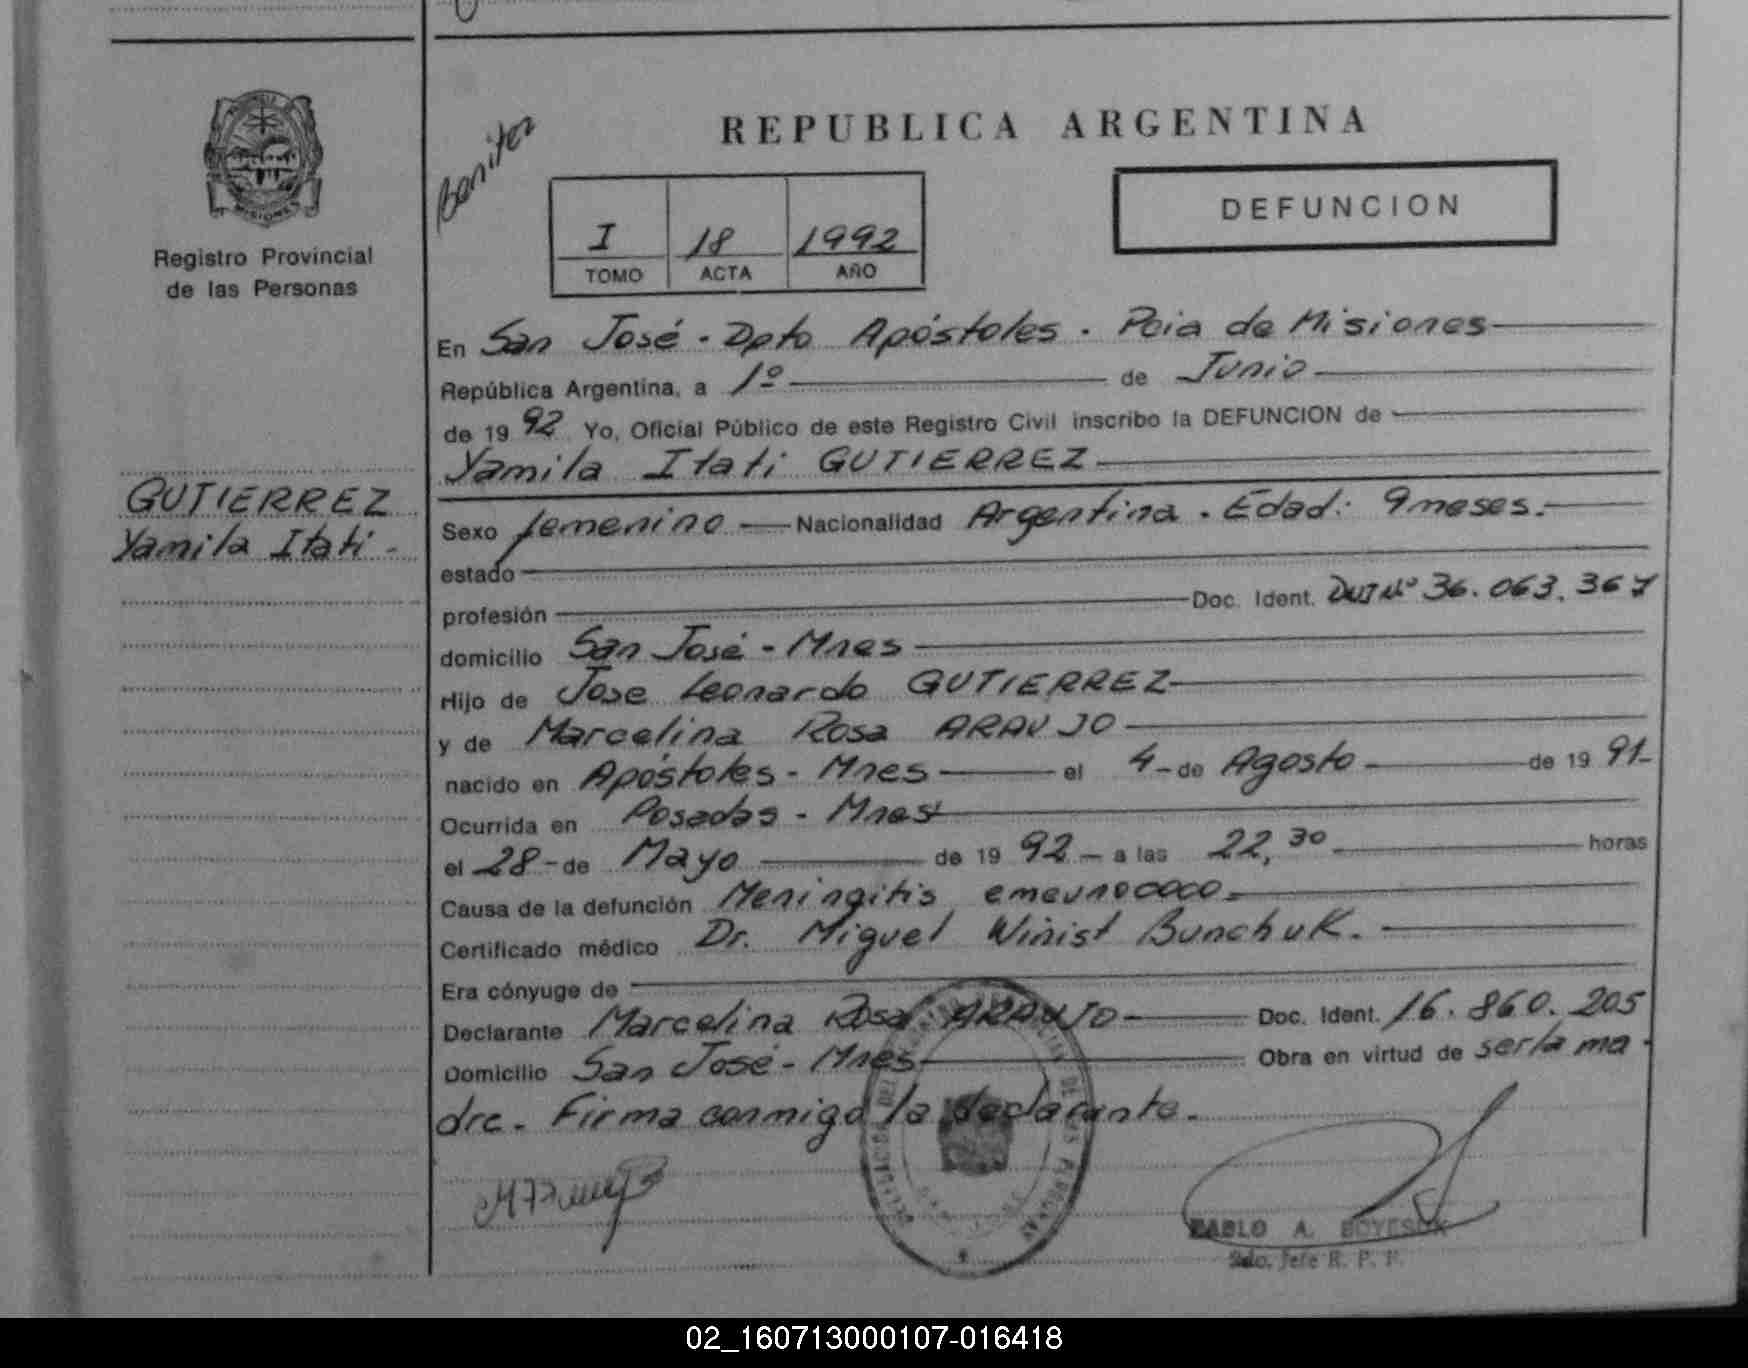 MISIONES
Registro Provincial
de las Personas
GUTIERREZ
Yamila Itati -
Benitez
REPUBLICA ARGENTINA
DEFUNCION
I 18 1992
TOMO ACTA AÑO
En San José - Dpto Apóstoles - Pcia de Misiones
República Argentina, a 1º de Junio
de 19 92 Yo, Oficial Público de este Registro Civil inscribo la DEFUNCION de
Yamila Itati GUTIERREZ
Sexo femenino Nacionalidad Argentina. Edad: 9 meses.
estado
profesión Doc. Ident. DNI Nº 36.063.367
domicilio San José - Mnes
Hijo de Jose Leonardo GUTIERREZ
y de Marcelina Rosa ARAUJO
nacido en Apóstoles - Mnes el 4 - de Agosto de 19 91-
Ocurrida en Posadas - Mnes
el 28 - de Mayo de 19 92 - a las 22,30 horas
Causa de la defunción Meningitis
Certificado médico Dr. Miguel Winist Bunchuk.
Era cónyuge de
Declarante Marcelina Rosa ARAUJO Doc. Ident. 16.860.205
Domicilio San José - Mnes Obra en virtud de ser la ma-
dre. Firma conmigo la declarante.
PABLO A. BOYESUK
Sdo. Jefe R. P. P.
02_160713000107-016418